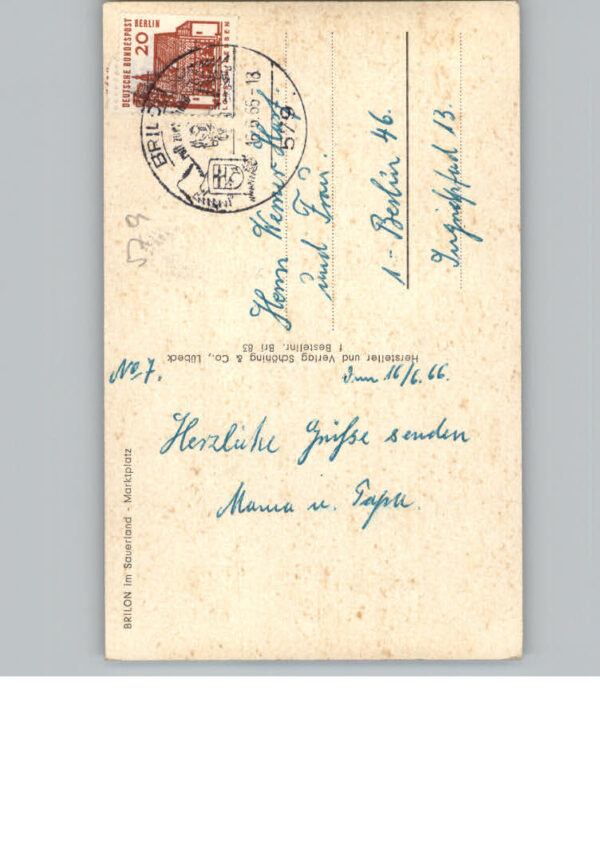 DEUTSCHE BUNDESPOST
BERLIN
20
BRILON
16.6.66-18
579
Herrn Werner
und Frau.
1 - Berlin 46.
13.
579
Hersteller und Verlag Schöning & Co., Lübeck
Bestellnr. Bri 83
No 7.
den 16/6.66.
Herzliche Grüße senden
Mama u. Papa.
BRILON im Sauerland - Marktplatz